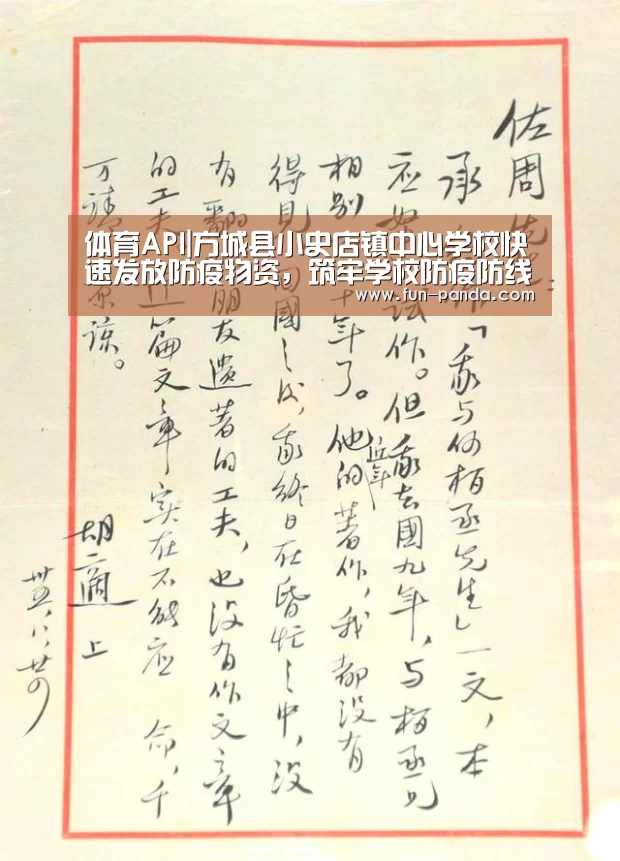 佐周先生:
承 「我与何柏丞先生」一文,本
应 试作。但我去國九年,与柏丞兄
相别 十年了。他的近年著作,我都没有
得見 囘國之后,我終日在昏忙之中,没
有翻 朋友遺著的工夫,也没有作文章
的工夫 這篇文章实在不能应 命,千
万請 原諒。
胡適 上
卅五,八,廿四
体育API|方城县小史店镇中心学校快
速发放防疫物资,筑牢学校防疫防线
www.fun-panda.com